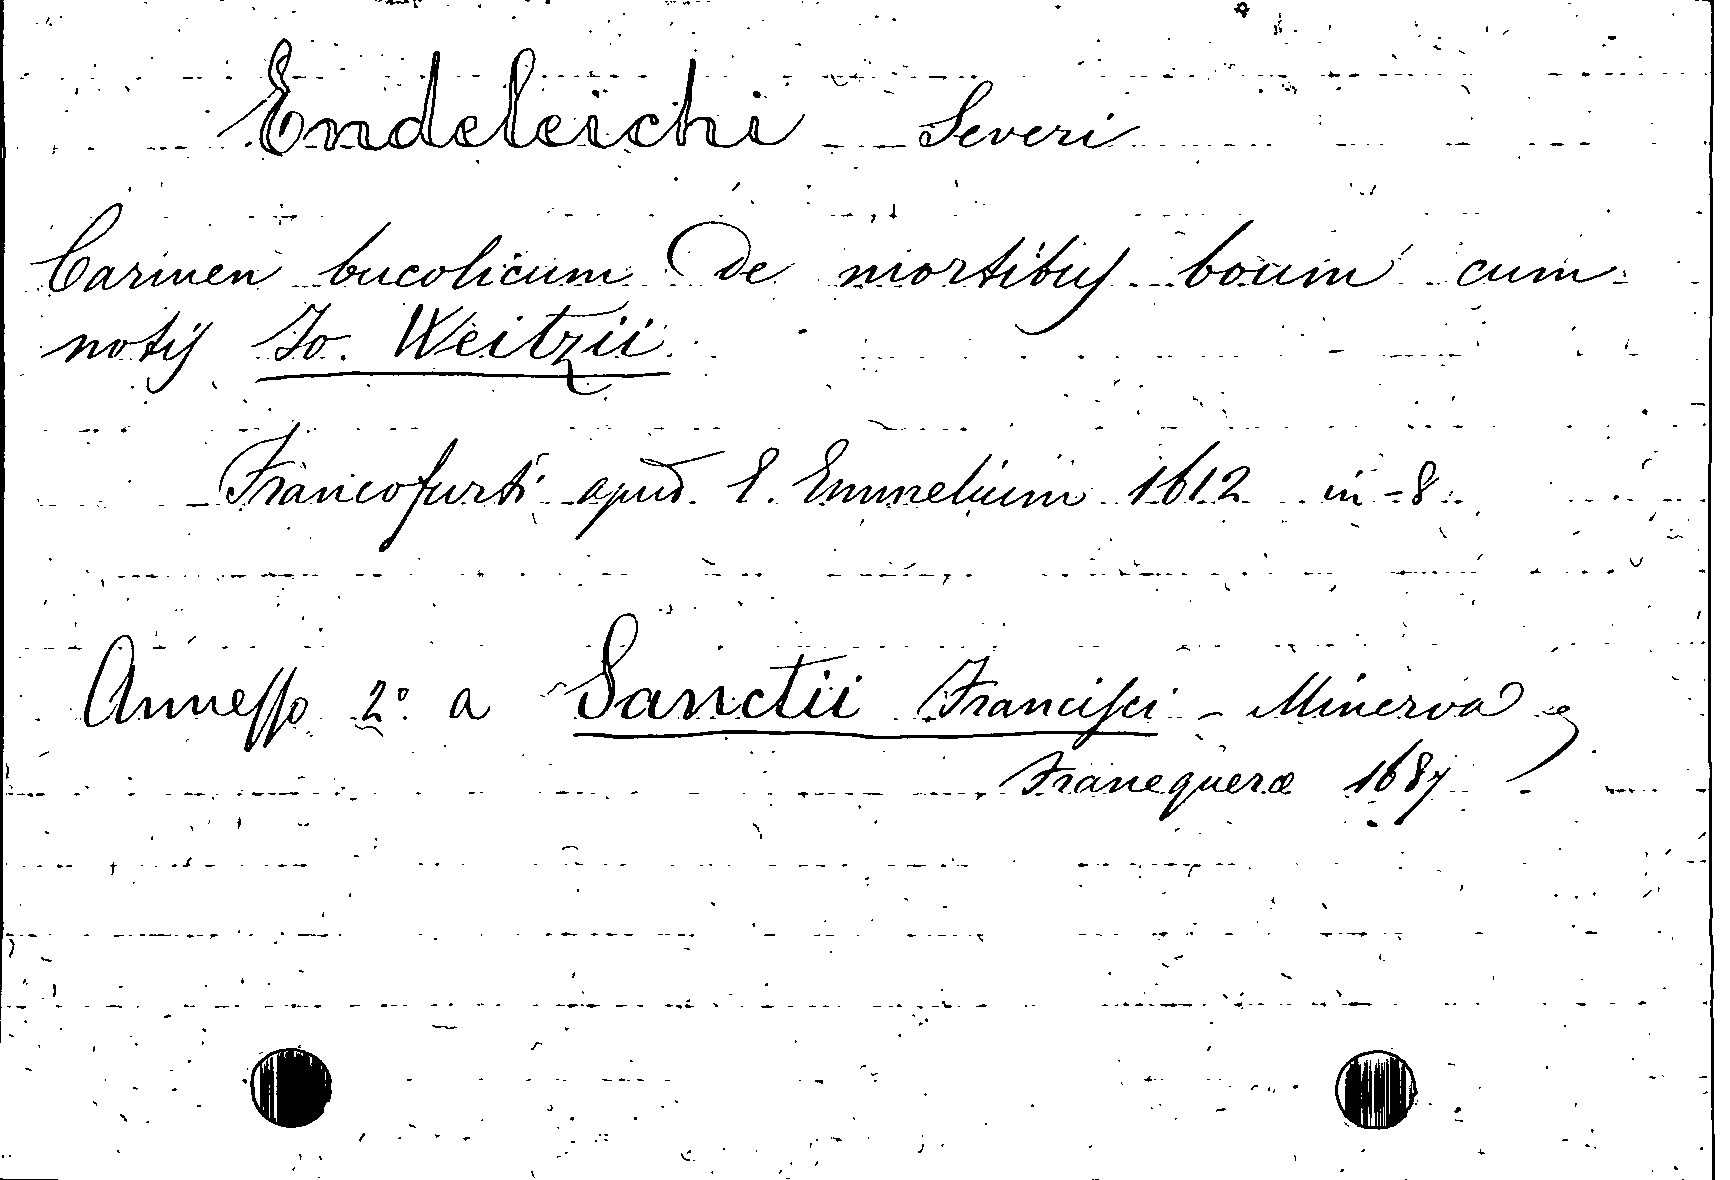 Endeleichi Severi
Carmen bucolicum De mortibus boum cum
notis Jo. Weitzii
Francofurti apud E. Emmelium 1612 in-8.
Annesso 2º a Sanctii Francisci - Minerva
Franequeræ 1687